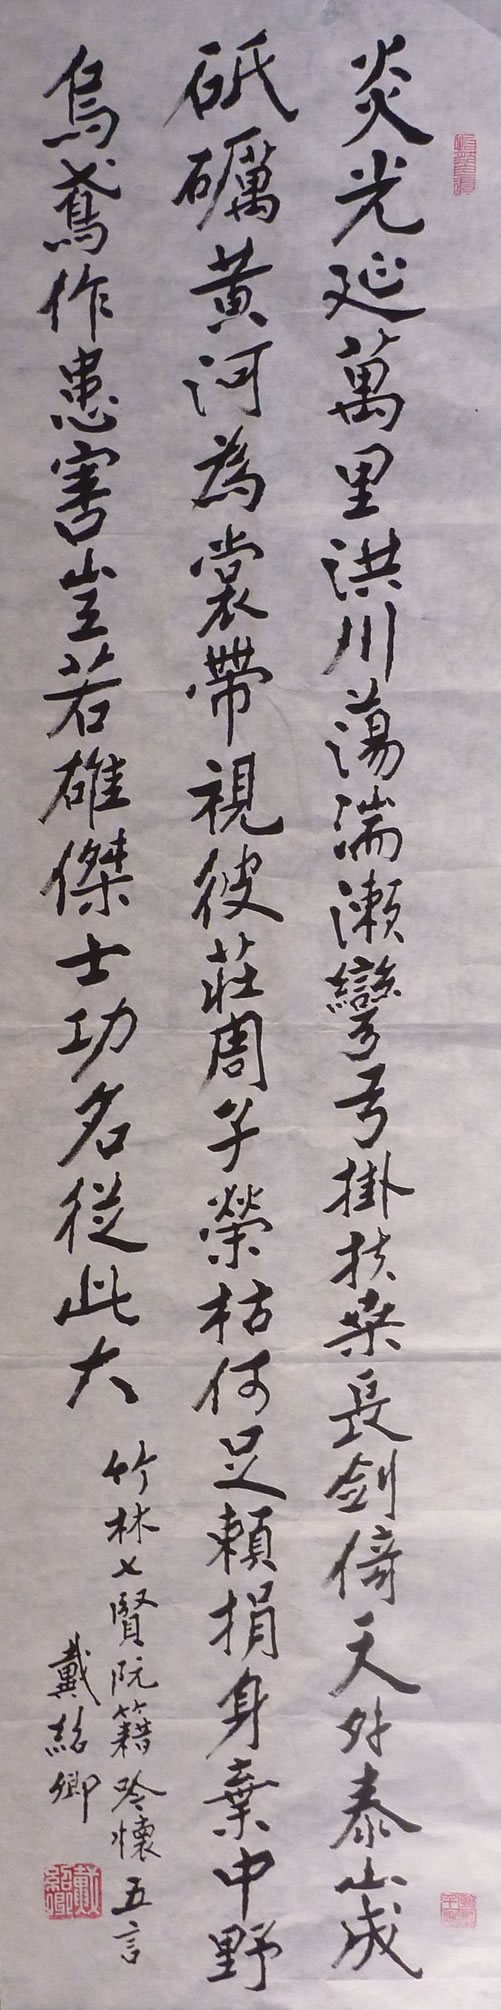 炎光延萬里洪川蕩湍瀨彎弓掛扶桑長劍倚天外泰山成
砥礪黃河為裳帶視彼莊周子榮枯何足賴捐身棄中野
烏鳶作患害豈若雄傑士功名從此大
竹林七賢阮籍咏懷五言
戴紹卿